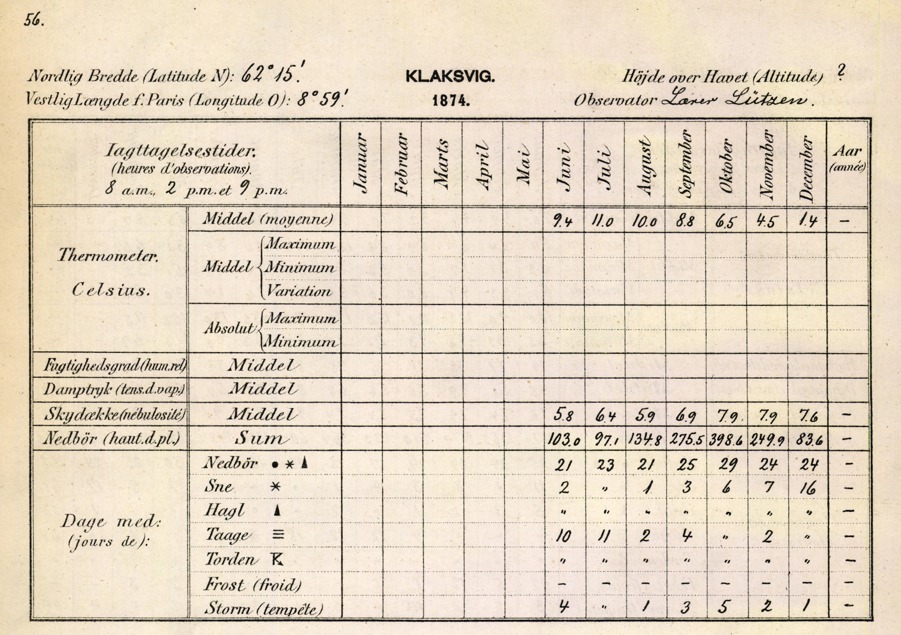 56.
Nordlig Bredde (Latitude N): 62° 15'. KLAKSVIG. Höjde over Havet (Altitude) ?
Vestlig Længde f. Paris (Longitude O): 8° 59'. 1874. Observator Lærer Lützen.
Iagttagelsestider. Januar Februar Marts April Mai Juni Juli August September Oktober November December Aar
(heures d'observations). (année)
8 a.m., 2 p.m. et 9 p.m.
Middel (moyenne) 9.4 11.0 10.0 8.8 6.5 4.5 1.4 –
Thermometer. Celsius.
Middel { Maximum
Minimum
Variation
Absolut { Maximum
Minimum
Fugtighedsgrad (hum. rel) Middel
Damptryk (tens. d. vap.) Middel
Skydække (nébulosité) Middel 5.8 6.4 5.9 6.9 7.9 7.9 7.6 –
Nedbör (haut. d. pl.) Sum 103.0 97.1 134.8 275.5 398.6 249.9 83.6 –
Dage med:
(jours de):
Nedbör ● * ▲ 21 23 21 25 29 24 24 –
Sne * 2 " 1 3 6 7 16 –
Hagl ▲ " " " " " " " –
Taage ≡ 10 11 2 4 " 2 " –
Torden " " " " " " " –
Frost (froid) – – – – – – – –
Storm (tempête) 4 " 1 3 5 2 1 –